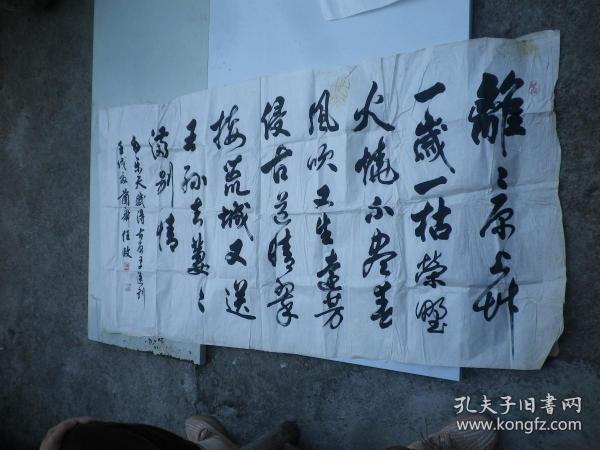 離〻原上艸
一歲一枯榮野
火燒不盡春
風吹又生遠芳
侵古道晴翠
接荒城又送
王孫去萋〻
滿別情
白樂天賦得古原草送別
壬戌 蘭齋任政
孔夫子旧書网
www.kongfz.com